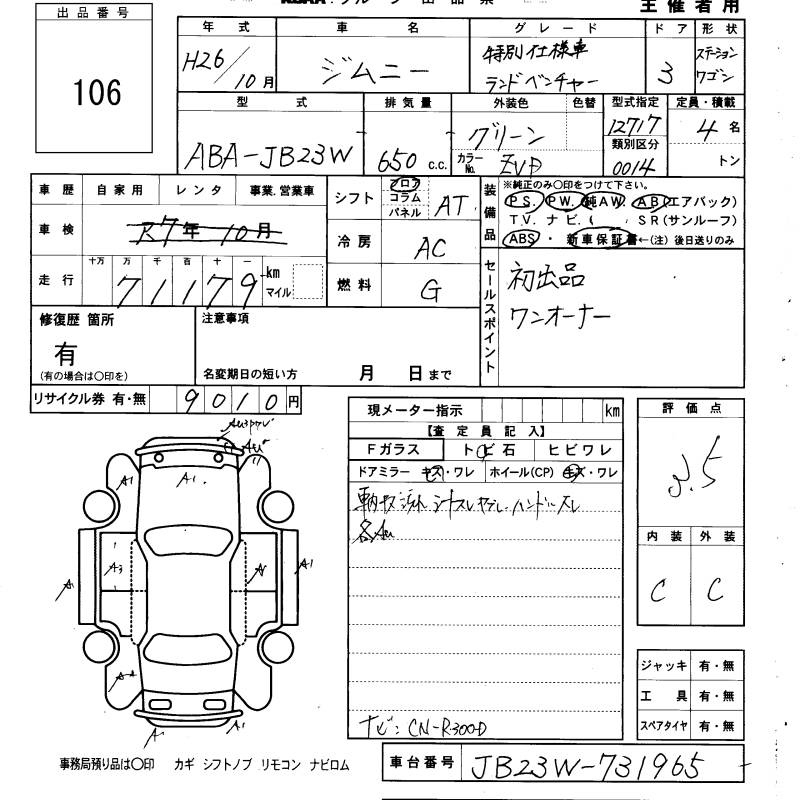 出品番号
106
主催者用
年式 車名 グレード ドア 形状
H26/10月 ジムニー 特別仕様車 ランドベンチャー 3 ステーションワゴン
型式 排気量 外装色 色替 型式指定 定員・積載
ABA-JB23W 650 c.c. グリーン 12717 4名
カラーNo. ZVD 類別区分 0014 トン
車歴 自家用 レンタ 事業.営業車
車検 R7年10月
走行 十万 万 千 百 十 一
71179 km マイル
シフト フロア コラム パネル AT
冷房 AC
燃料 G
装備品 ※純正のみ○印をつけて下さい。
P.S. P.W. 純A.W. A.B(エアバック)
T.V. ナビ.( S.R(サンルーフ)
ABS・新車保証書←(注)後日送りのみ
セールスポイント
初出品
ワンオーナー
修復歴 箇所
有
(有の場合は○印を)
注意事項
名変期日の短い方 月 日まで
リサイクル券 有・無 9010円
現メーター指示 km
【査定員記入】
Fガラス トビ石 ヒビワレ
ドアミラー キズ・ワレ ホイール(CP) キズ・ワレ
シートスレ ハンドルスレ
ナビ: CN-R300D
評価点
3.5
内装 外装
C C
ジャッキ 有・無
工具 有・無
スペアタイヤ 有・無
A1 A1 A1
A3 A1
A1
A2
A1 A1
事務局預り品は○印 カギ シフトノブ リモコン ナビロム
車台番号 JB23W-731965